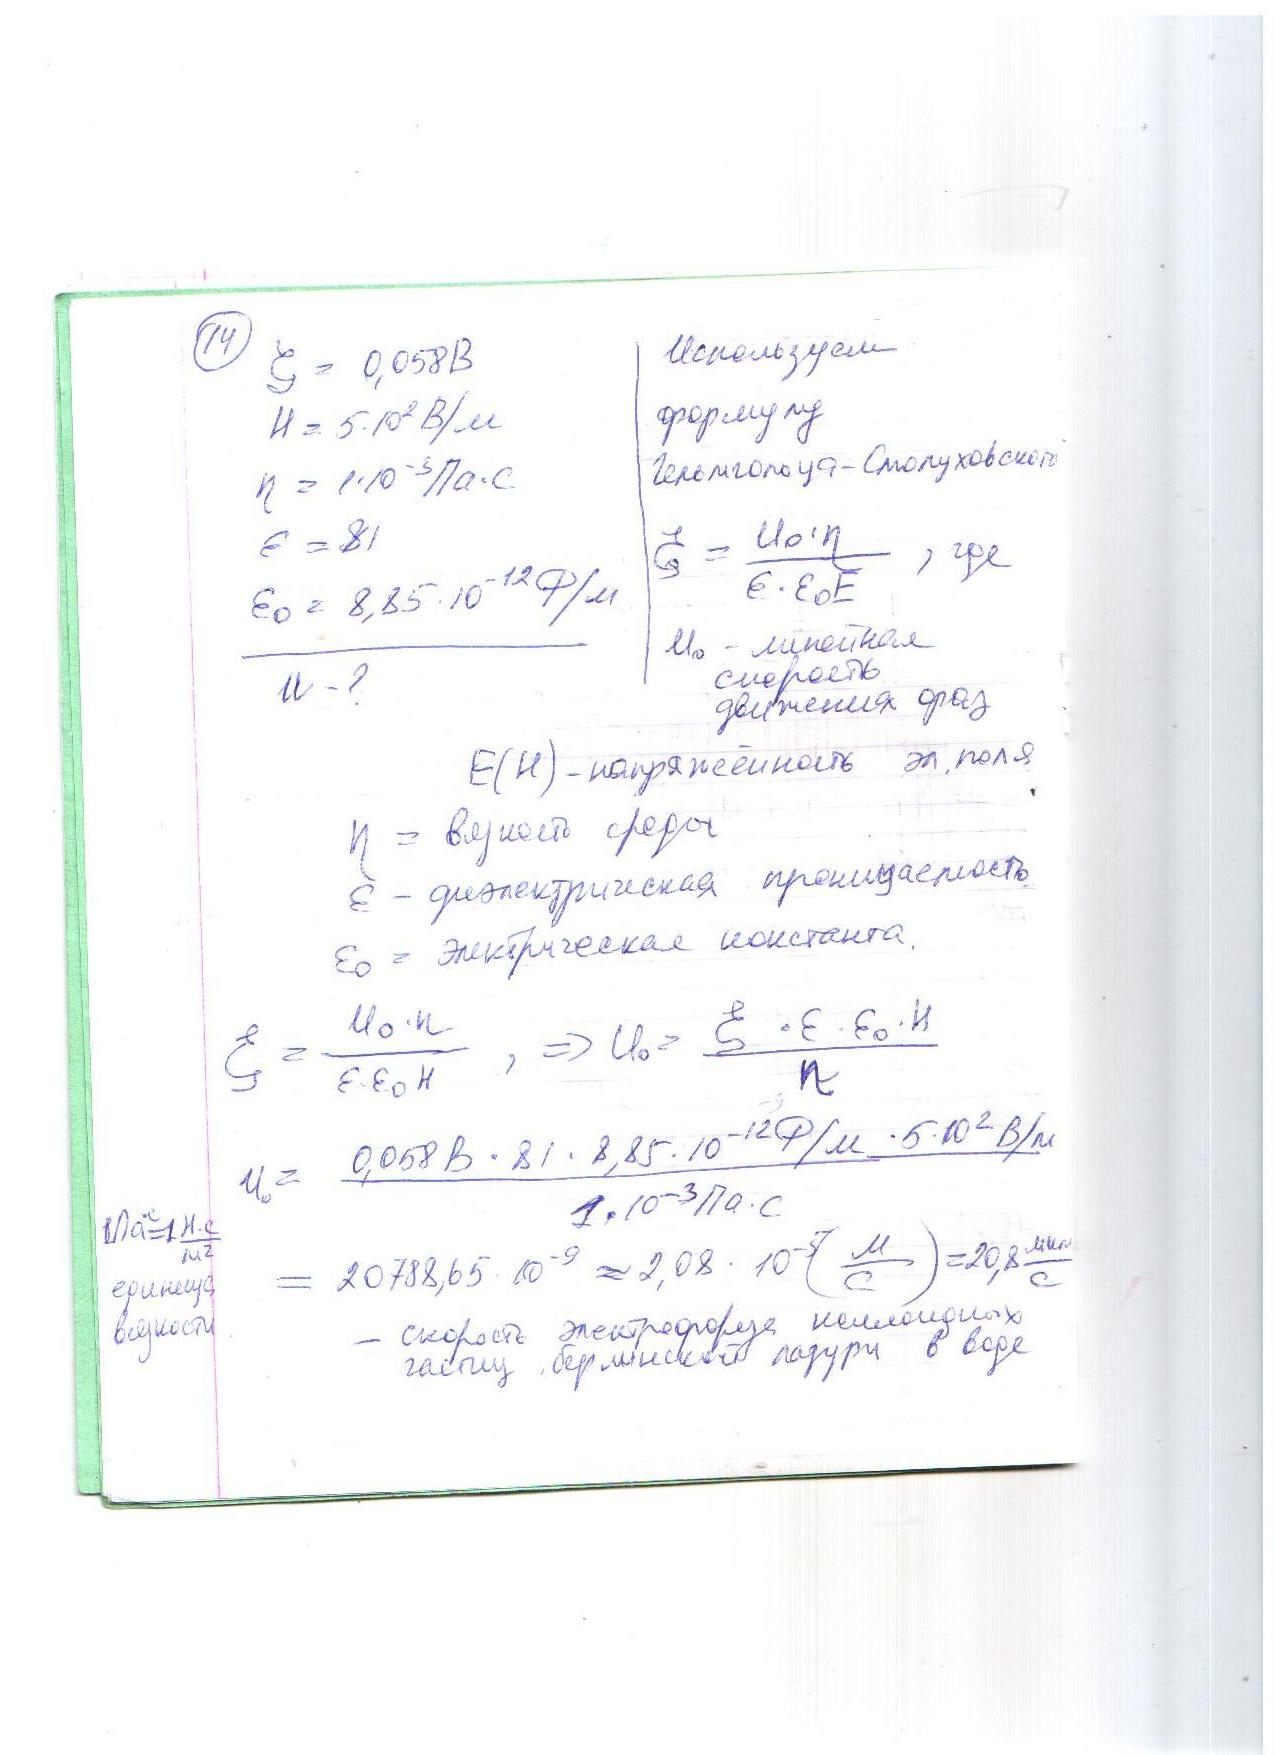 14
ξ = 0,058В
H = 5·10² В/м
η = 1·10⁻³ Па·с
ε = 81
ε₀ = 8,85·10⁻¹² Ф/м
u - ?
Используем
формулу
Гельмгольца-Смолуховского
ξ = u₀·η / ε·ε₀E , где
u₀ - линейная
скорость
движения фаз
E(H) - напряжённость эл. поля
η = вязкость среды
ε - диэлектрическая проницаемость
ε₀ = электрическая константа.
ξ = u₀·η / ε·ε₀H , => u₀ = ξ·ε·ε₀·H / η
u₀ = 0,058В · 81 · 8,85·10⁻¹² Ф/м · 5·10² В/м / 1·10⁻³ Па·с
1Па·с = 1 Н·с / м²
единица
вязкости
= 20788,65·10⁻⁹ ≈ 2,08·10⁻⁵ (м/с) = 20,8 мкм/с
- скорость электрофореза коллоидных
частиц берлинской лазури в воде